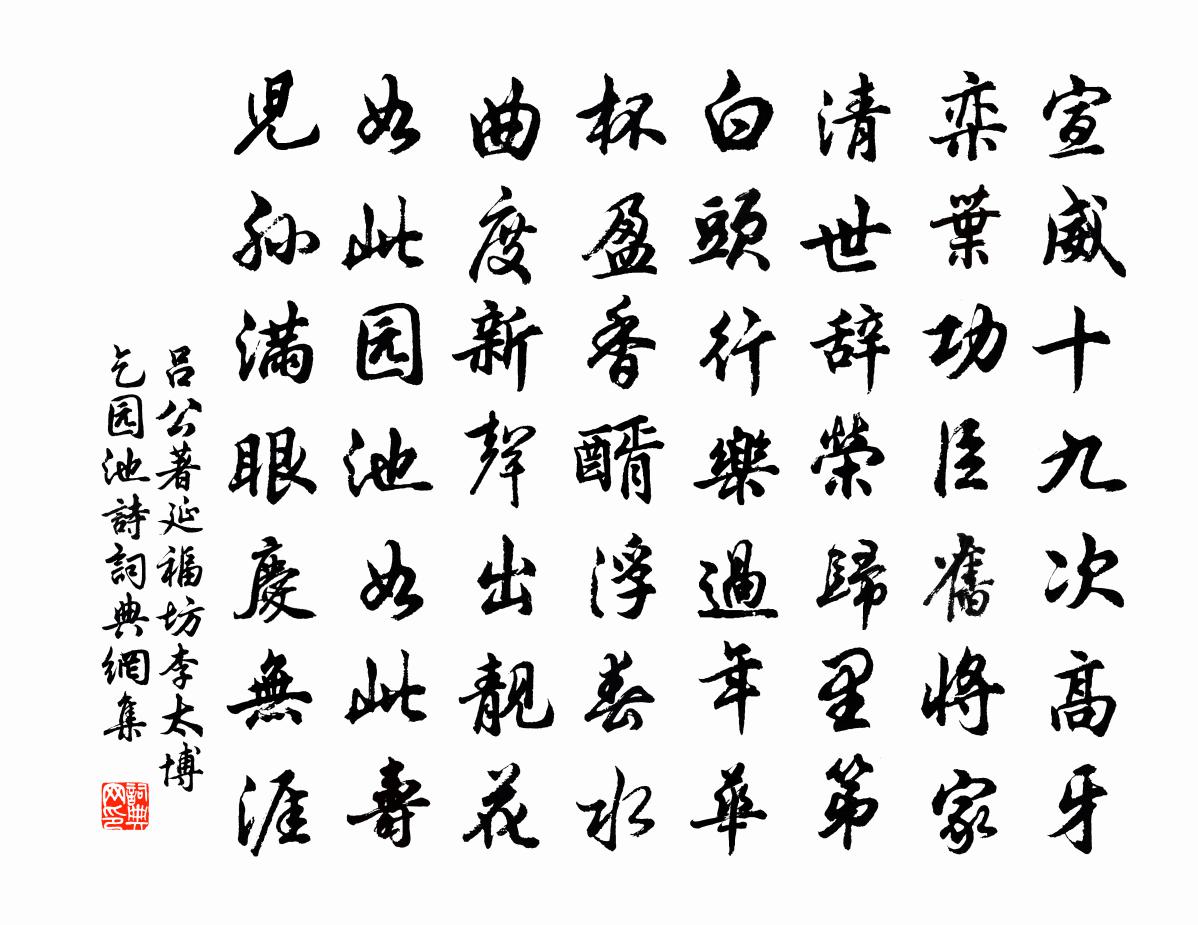 宣威十九次高牙
奕葉功臣舊將家
清世辞榮歸里第
白頭行樂過年華
杯盈香醑浮春水
曲度新聲出靚花
如此园池如此壽
兒孫滿眼慶無涯
吕公著延福坊李太博
乞园池詩詞典網集
詞典网印